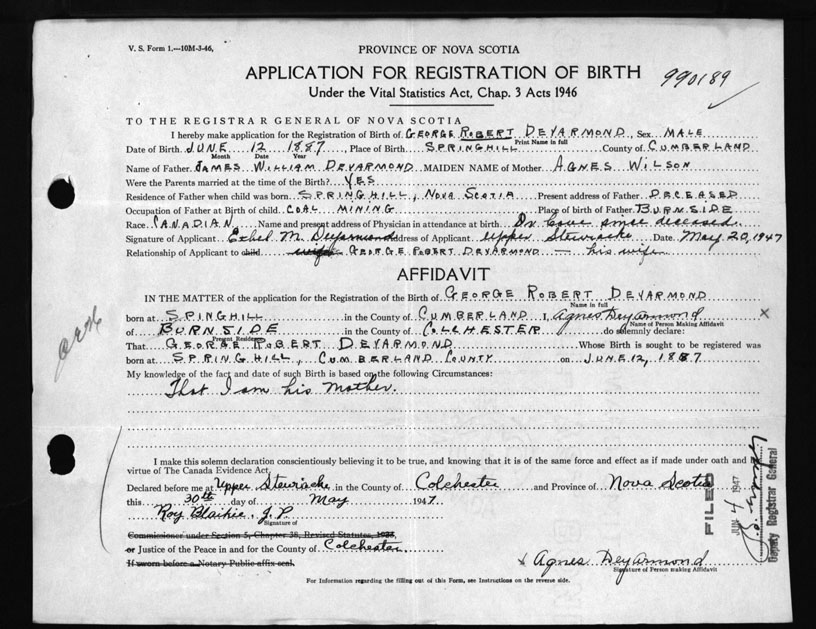 V. S. Form 1.—10M-3-46,
PROVINCE OF NOVA SCOTIA
APPLICATION FOR REGISTRATION OF BIRTH
990189
Under the Vital Statistics Act, Chap. 3 Acts 1946
TO THE REGISTRAR GENERAL OF NOVA SCOTIA
I hereby make application for the Registration of Birth of GEORGE ROBERT DEYARMOND, Sex MALE
Print Name in full
Date of Birth JUNE 12 1887, Place of Birth SPRINGHILL County of CUMBERLAND
Month Date Year
Name of Father JAMES WILLIAM DEYARMOND MAIDEN NAME of Mother AGNES WILSON
Were the Parents married at the time of the Birth? YES
Residence of Father when child was born SPRINGHILL, NOVA SCOTIA Present address of Father DECEASED
Occupation of Father at Birth of child COAL MINING Place of birth of Father BURNSIDE
Race CANADIAN Name and present address of Physician in attendance at birth Dr Cove since deceased.
Signature of Applicant Ethel M. Deyarmond Address of Applicant Upper Stewiacke Date May 20, 1947
Relationship of Applicant to child wife GEORGE ROBERT DEYARMOND — his wife
AFFIDAVIT
IN THE MATTER of the application for the Registration of the Birth of GEORGE ROBERT DEYARMOND
Name in full
born at SPINGHILL in the County of CUMBERLAND I, Agnes Deyarmond X
Name of Person Making Affidavit
of BURNSIDE in the County of COLCHESTER do solemnly declare:
Present Residence
That GEORGE ROBERT DEYARMOND Whose Birth is sought to be registered was
born at SPRINGHILL, CUMBERLAND COUNTY on JUNE 12, 1887
My knowledge of the fact and date of such Birth is based on the following Circumstances:
That I am his Mother.
I make this solemn declaration conscientiously believing it to be true, and knowing that it is of the same force and effect as if made under oath and by
virtue of The Canada Evidence Act,
Declared before me at Upper Stewiacke in the County of Colchester and Province of Nova Scotia
this 30th day of May 1947.
Roy Blaikie, J.P.
Signature of
Commissioner under Section 5, Chapter 38, Revised Statutes, 1923,
or Justice of the Peace in and for the County of Colchester
If sworn before a Notary Public affix seal.
x Agnes Deyarmond
Signature of Person making Affidavit
For Information regarding the filling out of this Form, see Instructions on the reverse side.
FILED
JUN 4 1947
Deputy Registrar General